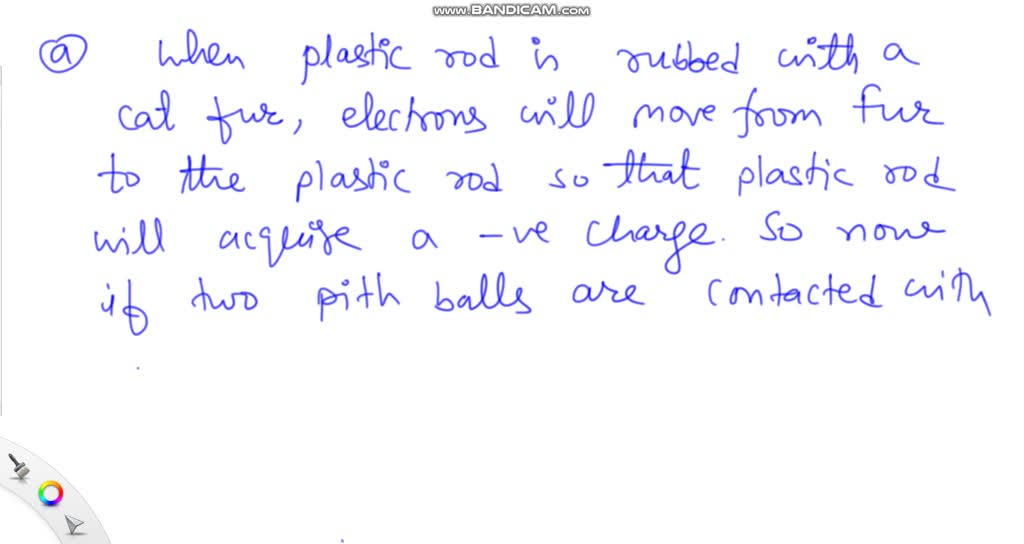 www.BANDICAM.com
(a) when plastic rod is rubbed with a
cat fur, electrons will move from fur
to the plastic rod so that plastic rod
will acquire a -ve charge. So now
if two pith balls are contacted with